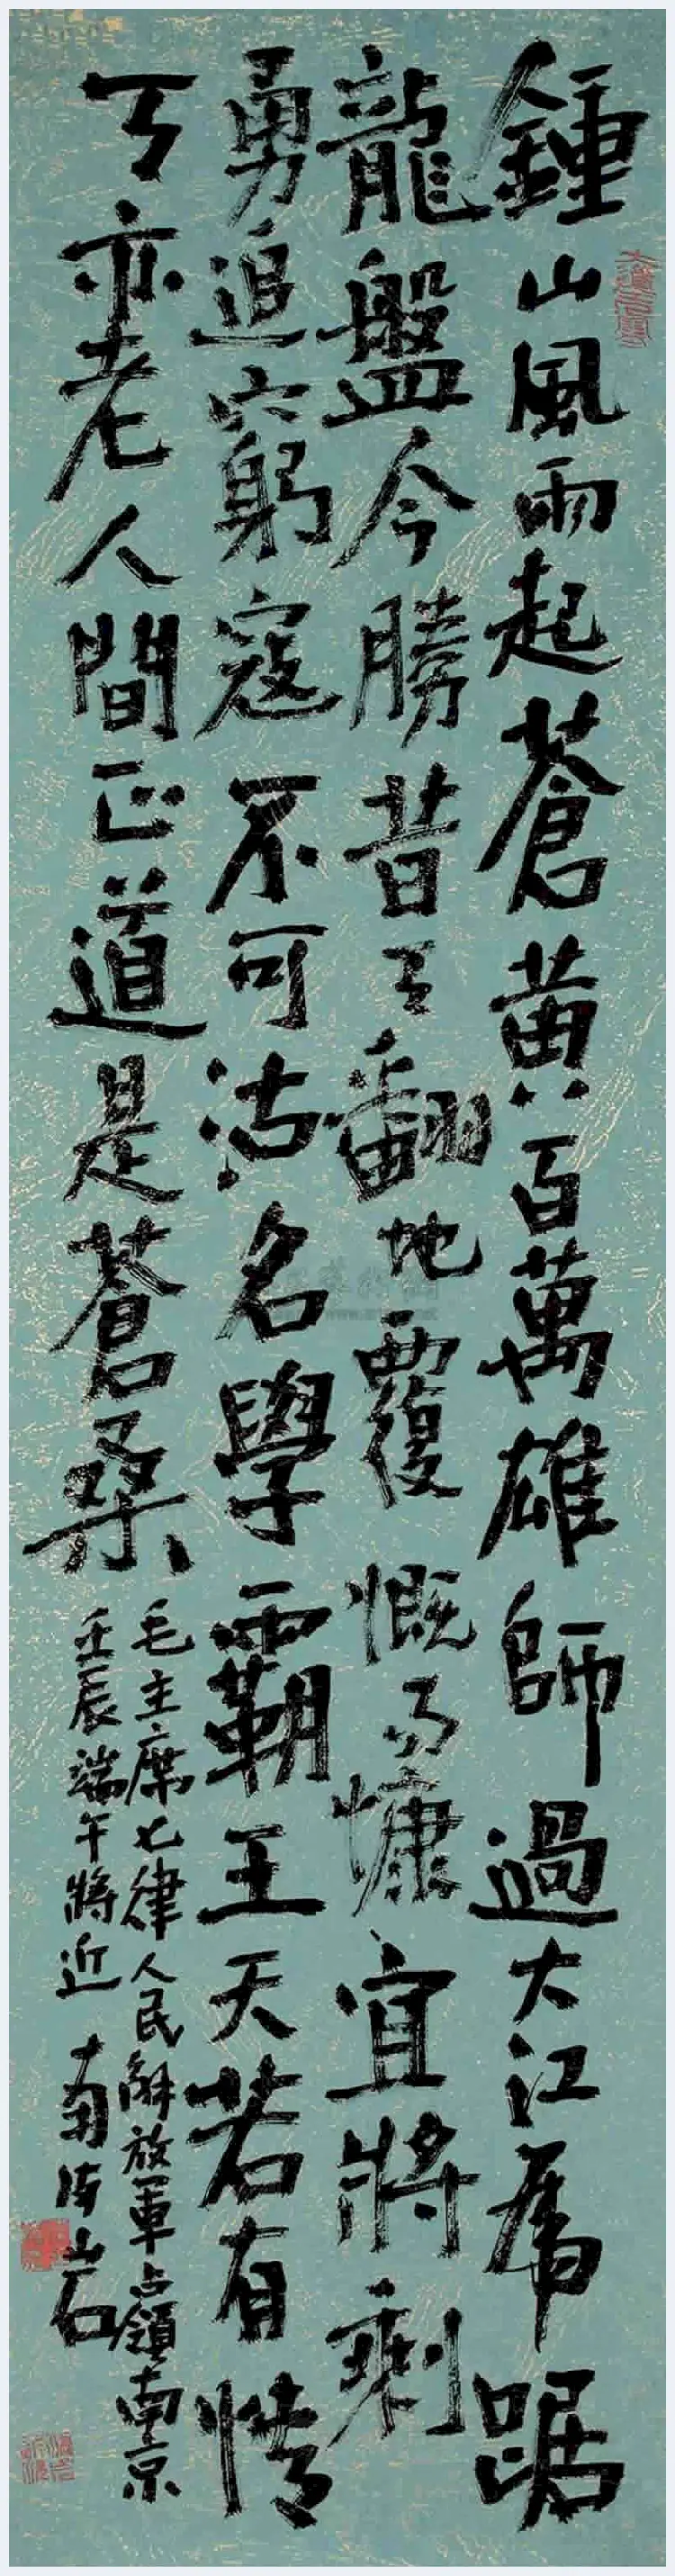 鍾山風雨起蒼黄百萬雄師過大江虎踞
龍盤今勝昔天翻地覆慨而慷宜將剩
勇追窮寇不可沽名學霸王天若有情
天亦老人間正道是蒼桑
毛主席七律人民解放軍占領南京
壬辰端午將近